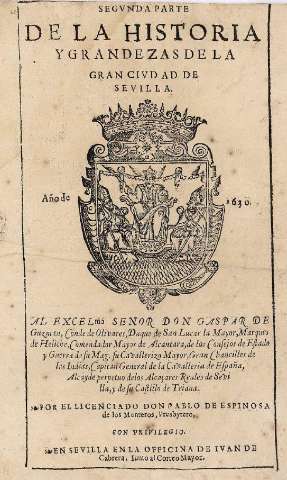 SEGVNDA PARTE
DE LA HISTORIA
Y GRANDEZAS DE LA
GRAN CIVDAD DE
SEVILLA.
Año de 1630.
AL EXCEL.mo SEÑOR DON GASPAR DE
Guzman, Conde de Olivares, Duque de San Lucar la Mayor, Marques
de Heliche, Comendador Mayor de Alcantara, de los Consejos de Estado
y Guerra de su Mag. su Cavallerizo Mayor, Gran Chanciller de
los Indias, Capitan General de la Cavalleria de España,
Alcayde perpetuo de los Alcaçares Reales de Sevi
lla, y de su Castillo de Triana.
POR EL LICENCIADO DON PABLO DE ESPINOSA
de los Monteros, Presbytero.
CON PRIVILEGIO.
EN SEVILLA EN LA OFFICINA DE IVAN DE
Cabrera, Iunto al Correo Mayor.